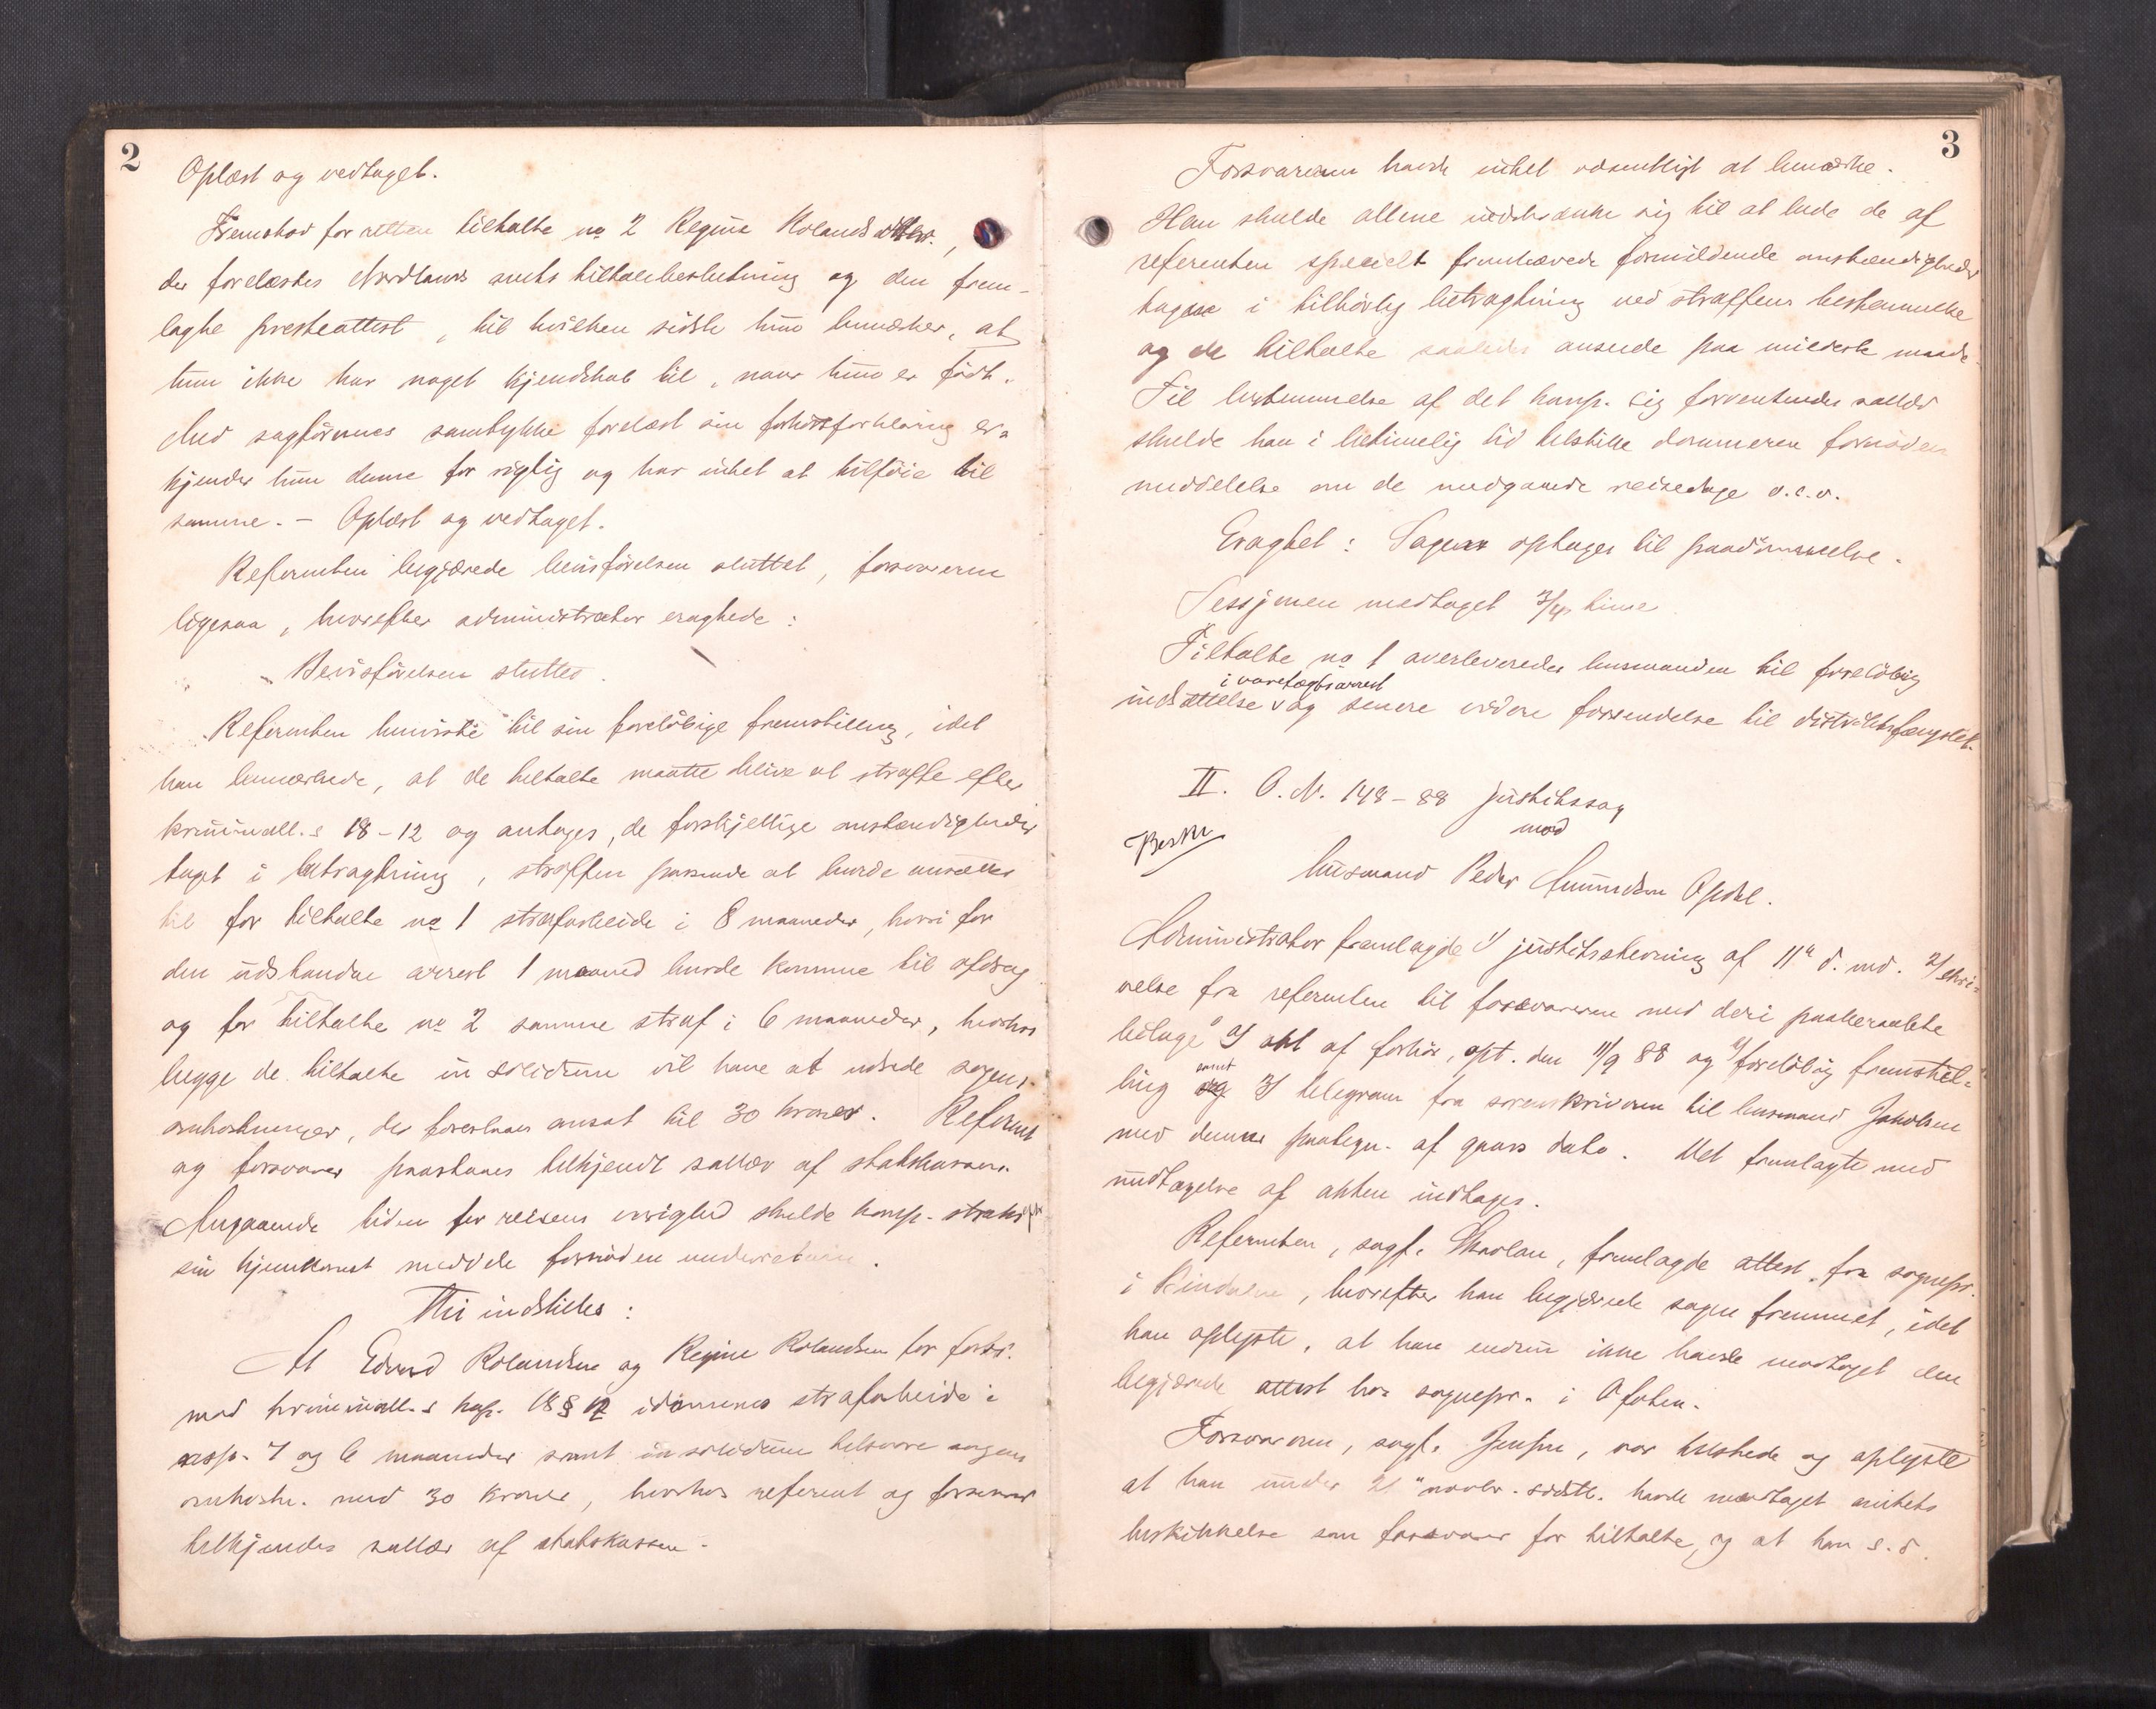 2
Oplæst og vedtaget.
Fremstod for retten tiltalte no 2 Regine Rolandsdatter,
der forelæstes Nordlands amts tiltalebeslutning og den frem-
lagte presteattest, til hvilken sidste hun bemærker, at
hun ikke har noget kjendskab til, naar hun er født.
Med sagførernes samtykke forelæst sin forhørsforklaring er-
kjender hun denne for rigtig og har intet at tilføie til
samme. - Oplæst og vedtaget.
Referenten begjærede bevisførelsen sluttet, forsvareren
ligesaa, hvorefter administrator eragtede:
Bevisførelsen sluttes.
Referenten henviste til sin foreløbige fremstilling, idet
han bemærkede, at de tiltalte maatte blive at straffe efter
kriminall.s 18-12 og antages, de forskjellige omstændigheder
taget i betragtning, straffen passende at burde ansættes
til for tiltalte no 1 strafarbeide i 8 maaneder, hvori for
den udstandne arrest 1 maaned burde komme til afdrag
og for tiltalte no 2 samme straf i 6 maaneder, hvorhos
begge de tiltalte in solidum vil have at udrede sagens
omkostninger, der foreslaaes ansat til 30 kroner. Referent
og forsvarer paastaaes tilkjendt sallær af statskassen.
Angaaende tiden for reisens varighed skulde komp. straks efter
sin hjemkomst meddele fornøden underretning.
Thi indstilles:
At Edvard Rolandsen og Regine Rolandsen for forbr.
mod kriminall.s kap. 18 § 12 idømmes strafarbeide i
resp. 7 og 6 maaneder samt in solidum tilsvare sagens
omkostn. med 30 kroner, hvorhos referent og forsvarer
tilkjendes sallær af statskassen.
3
Forsvareren havde intet væsentligt at bemærke.
Han skulde allene indskrænke sig til at bede de af
referenten specielt fremhævede formildende omstændigheder
tagne i tilbørlig betragtning ved straffens bestemmelse
og de tiltalte saaledes ansede paa mildeste maade.
Til bestemmelse af det komp. sig forventendes sallær
skulde han i betimelig tid tilstille dommeren fornøden
meddelelse om de medgaaede reisedage o.s.v.
Eragtet: Sagen optages til paadømmelse.
Sessionen medtaget 3/4 time
Tiltalte no 1 overleveredes lensmanden til foreløbig
i varetægtsarrest
indsættelse og senere videre forsendelse til distriktsfængslet.
II. O. N. 148-88 justitssag
mod
Besk
husmand Peder Amundsen Opdal.
Administrator fremlagde 1/ justitsstevning af 11te d. md. 2/ skri-
velse fra referenten til forsvareren med deri paaberaabte
bilage a/ akt af forhør, opt. den 11/9 88 og b/ foreløbig fremstil-
ling samt 3/ telegram fra sorenskriveren til lensmand Jakobsen
med dennes paategn. af gaars dato. Det fremlagte med
undtagelse af akten indtages.
Referenten, sagf. Skavlan, fremlagde attest fra sognepr.
i , hvorefter han begjærede sagen fremmet, idet
han oplyste, at han endnu ikke havde modtaget den
begjærede attest hos sognepr. i Ofoten.
Forsvareren, sagf. Jensen, var tilstede og oplyste
at han under 21de novbr. sidstl. havde modtaget amtets
beskikkelse som forsvarer for tiltalte, og at han s. d.